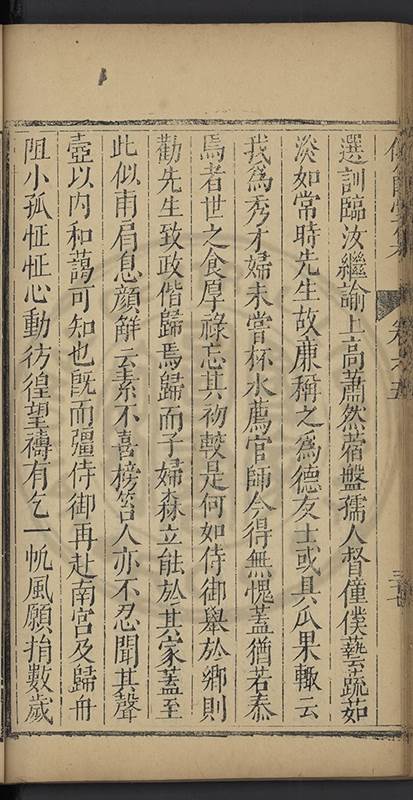 選訓臨汝繼諭上高蕭然苜盤孺人督僮僕藝蔬茹
淡如常時先生故廉稱之為德友士或具瓜果輒云
我為秀才婦未嘗杯水薦官師今得無愧蓋猶若忝
焉者世之食厚祿忘其初輕是何如侍御舉於鄉則
勸先生致政偕歸焉歸而子婦森立能於其家蓋至
此似甫屑息顏解云素不喜榜笞人亦不忍聞其聲
壼以內和藹可知也旣而彊侍御再赴南宮及歸舟
阻小孤怔怔心動彷徨望禱有乞一帆風願捐數歲